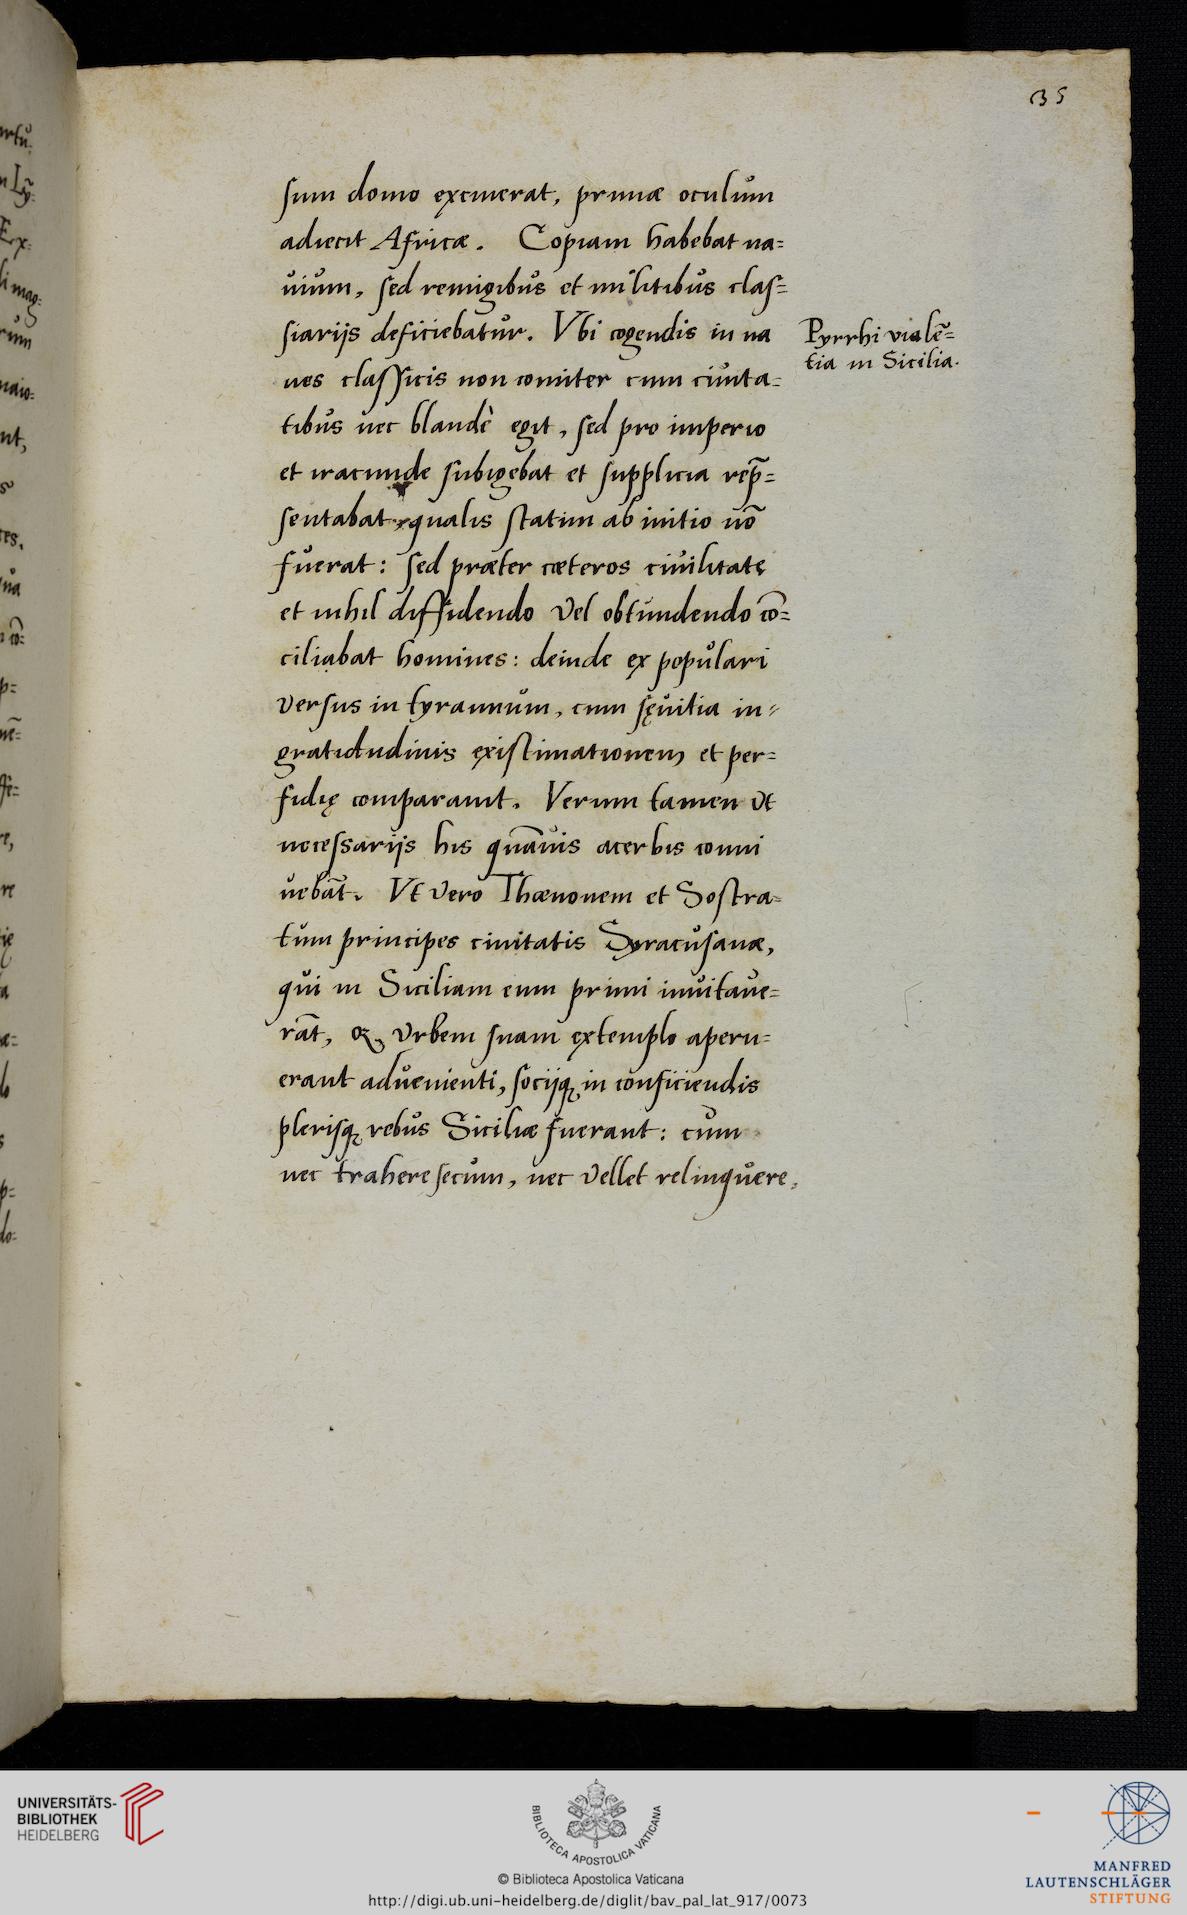 35
sum domo exciuerat, primæ oculum
adiecit Africæ. Copiam habebat na=
uium, sed remigibus et militibus clas=
siarijs deficiebatur. Vbi cogendis in na
ues classicis non comiter cum ciuita=
tibus nec blandè egit, sed pro imperio
et iracunde subigebat et supplicia rep̃=
sentabat, qualis statim ab initio nõ
fuerat: sed præter cæteros ciuilitate
et nihil diffidendo vel obtundendo cõ=
ciliabat homines: deinde ex populari
versus in tyrannum, cum sęuitia in=
gratidudinis existimationem et per=
fidię comparauit. Verum tamen vt
necessarijs his quãuis acerbis conni
uebãt. Vt vero Thænonem et Sostra=
tum principes ciuitatis Syracusanæ,
qui in Siciliam eum primi inuitaue=
rãt, & vrbem suam extemplo aperu=
erant aduenienti, socijq; in conficiendis
plerisq; rebus Siciliæ fuerant: cum
nec trahere secum, nec vellet relinquere,
Pyrrhi violẽ=
tia in Sicilia.
UNIVERSITÄTS-
BIBLIOTHEK
HEIDELBERG
BIBLIOTECA APOSTOLICA VATICANA
© Biblioteca Apostolica Vaticana
http://digi.ub.uni-heidelberg.de/diglit/bav_pal_lat_917/0073
MANFRED
LAUTENSCHLÄGER
STIFTUNG